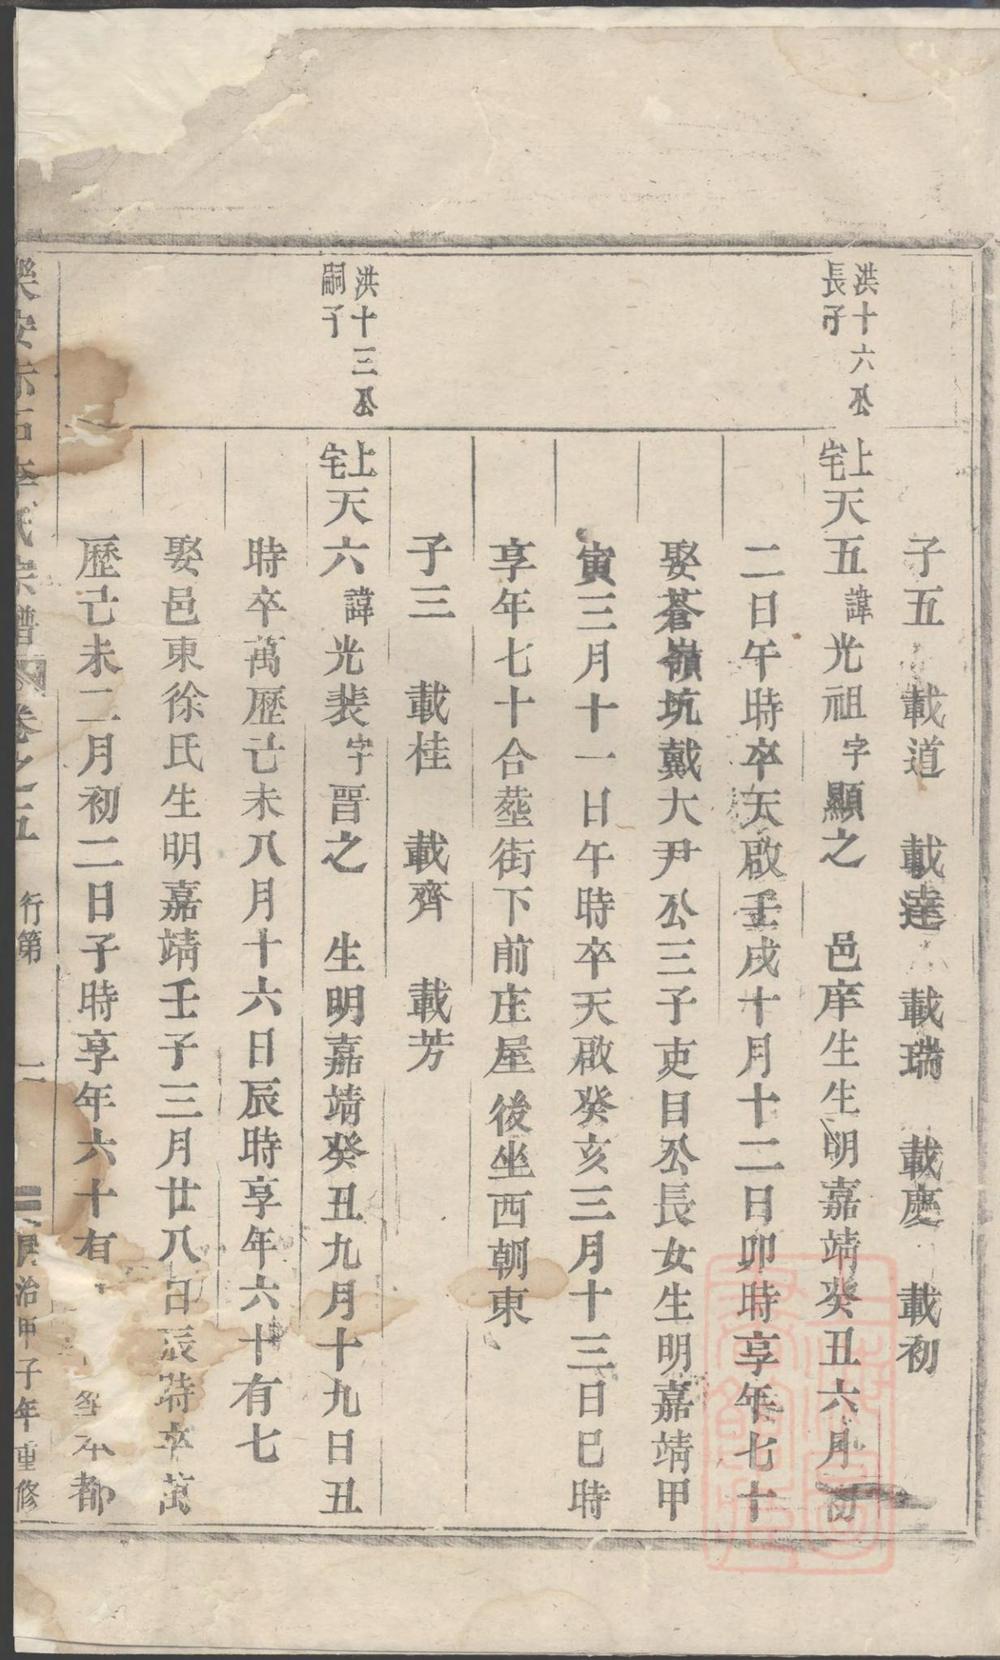 子五 載道 載達 載瑞 載慶 載初
洪十六公
長子
上宅天五諱光祖字顯之 邑庠生生明嘉靖癸丑六月初
二日午時卒天啟壬戌十月十二日卯時享年七十
娶蒼嶺坑戴大尹公三子吏目公長女生明嘉靖甲
寅三月十一日午時卒天啟癸亥三月十三日巳時
享年七十合塟街下前庄屋後坐西朝東
子三 載桂 載齊 載芳
洪十三公
嗣子
上宅天六諱光裴字晋之 生明嘉靖癸丑九月十九日丑
時卒萬歷己未八月十六日辰時享年六十有七
娶邑東徐氏生明嘉靖壬子三月廿八日辰時卒萬
歷己未二月初二日子時享年六十有 本都
樂安 石李氏宗譜 卷之五 行第 二 治甲子年重修